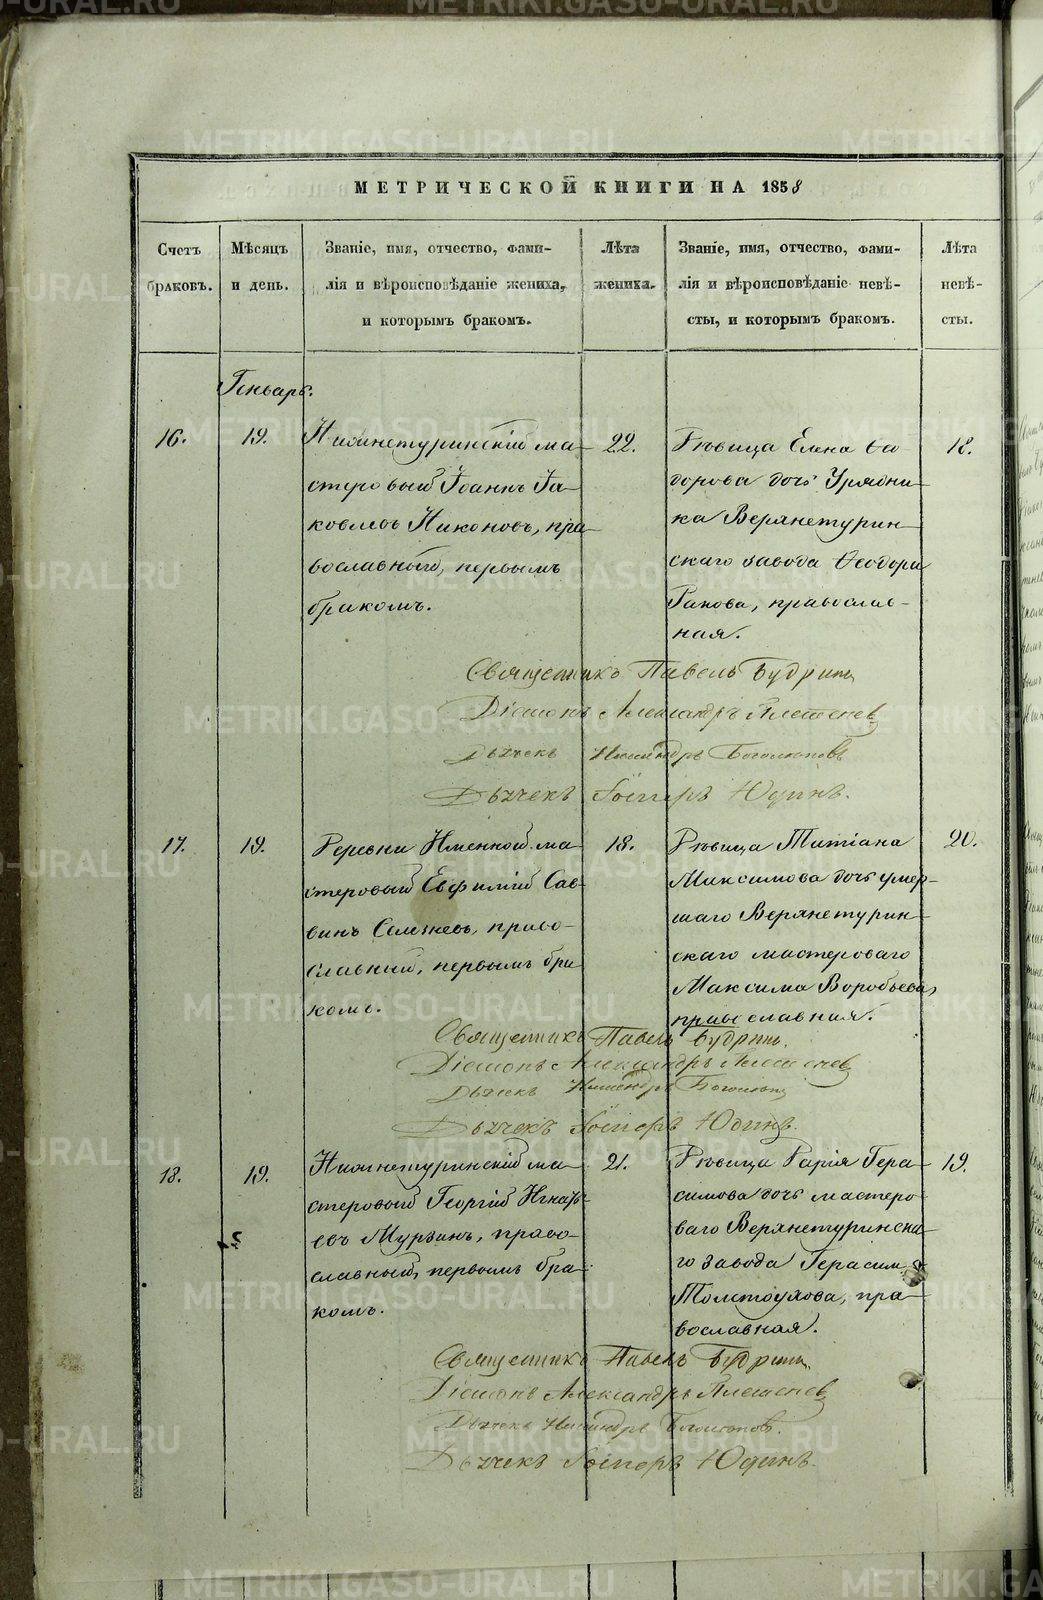 МЕТРИЧЕСКОЙ КНИГИ НА 1858
Счетъ браковъ.
Мѣсяцъ и день.
Званіе, имя, отчество, фами-
лія и вѣроисповѣданіе жениха,
и которымъ бракомъ.
Лѣта жениха.
Званіе, имя, отчество, фами-
лія и вѣроисповѣданіе невѣ-
сты, и которымъ бракомъ.
Лѣта невѣ-
сты.
Генварь.
16.
19.
Нижнетуринскій ма-
стеровый Іоаннъ Іа-
ковлевъ Никоновъ, пра-
вославный, первымъ
бракомъ.
22.
Дѣвица Елена Ѳео
дорова дочь Урядни-
ка Верхнетурин-
скаго завода Ѳеодора
православ-
ная.
18.
Священникъ Павелъ Будринъ
Діаконъ Александръ Плетенев
Дьячекъ Никандръ Боголюповъ
Дьячекъ Юдинъ.
17.
19.
Деревни Именной ма-
стеровый Евфимій Сав-
винъ Селезневъ, право-
славный, первымъ бра
комъ.
18.
Дѣвица Татіана
Максимова дочь умер-
шаго Верхнетурин-
скаго мастероваго
Максима Воробьева,
православная.
20.
Священникъ Павелъ Будринъ.
Діаконъ Александръ Плетенев
Дьячекъ Никандръ
Дьячекъ Юдинъ.
18.
19.
Нижнетуринскій ма-
стеровый Георгій Игнать-
евъ Мурзинъ, право-
славный, первымъ бра-
комъ.
21.
Дѣвица Дарія Гера-
симова дочь мастеро-
ваго Верхнетуринска-
го завода Герасима
Толстоухова, пра-
вославная.
19.
Священникъ Павелъ Будринъ.
Діаконъ Александръ Плетенев
Дьячекъ Никандръ Боголюповъ.
Дьячекъ Юдинъ.
METRIKI.GASO-URAL.RU